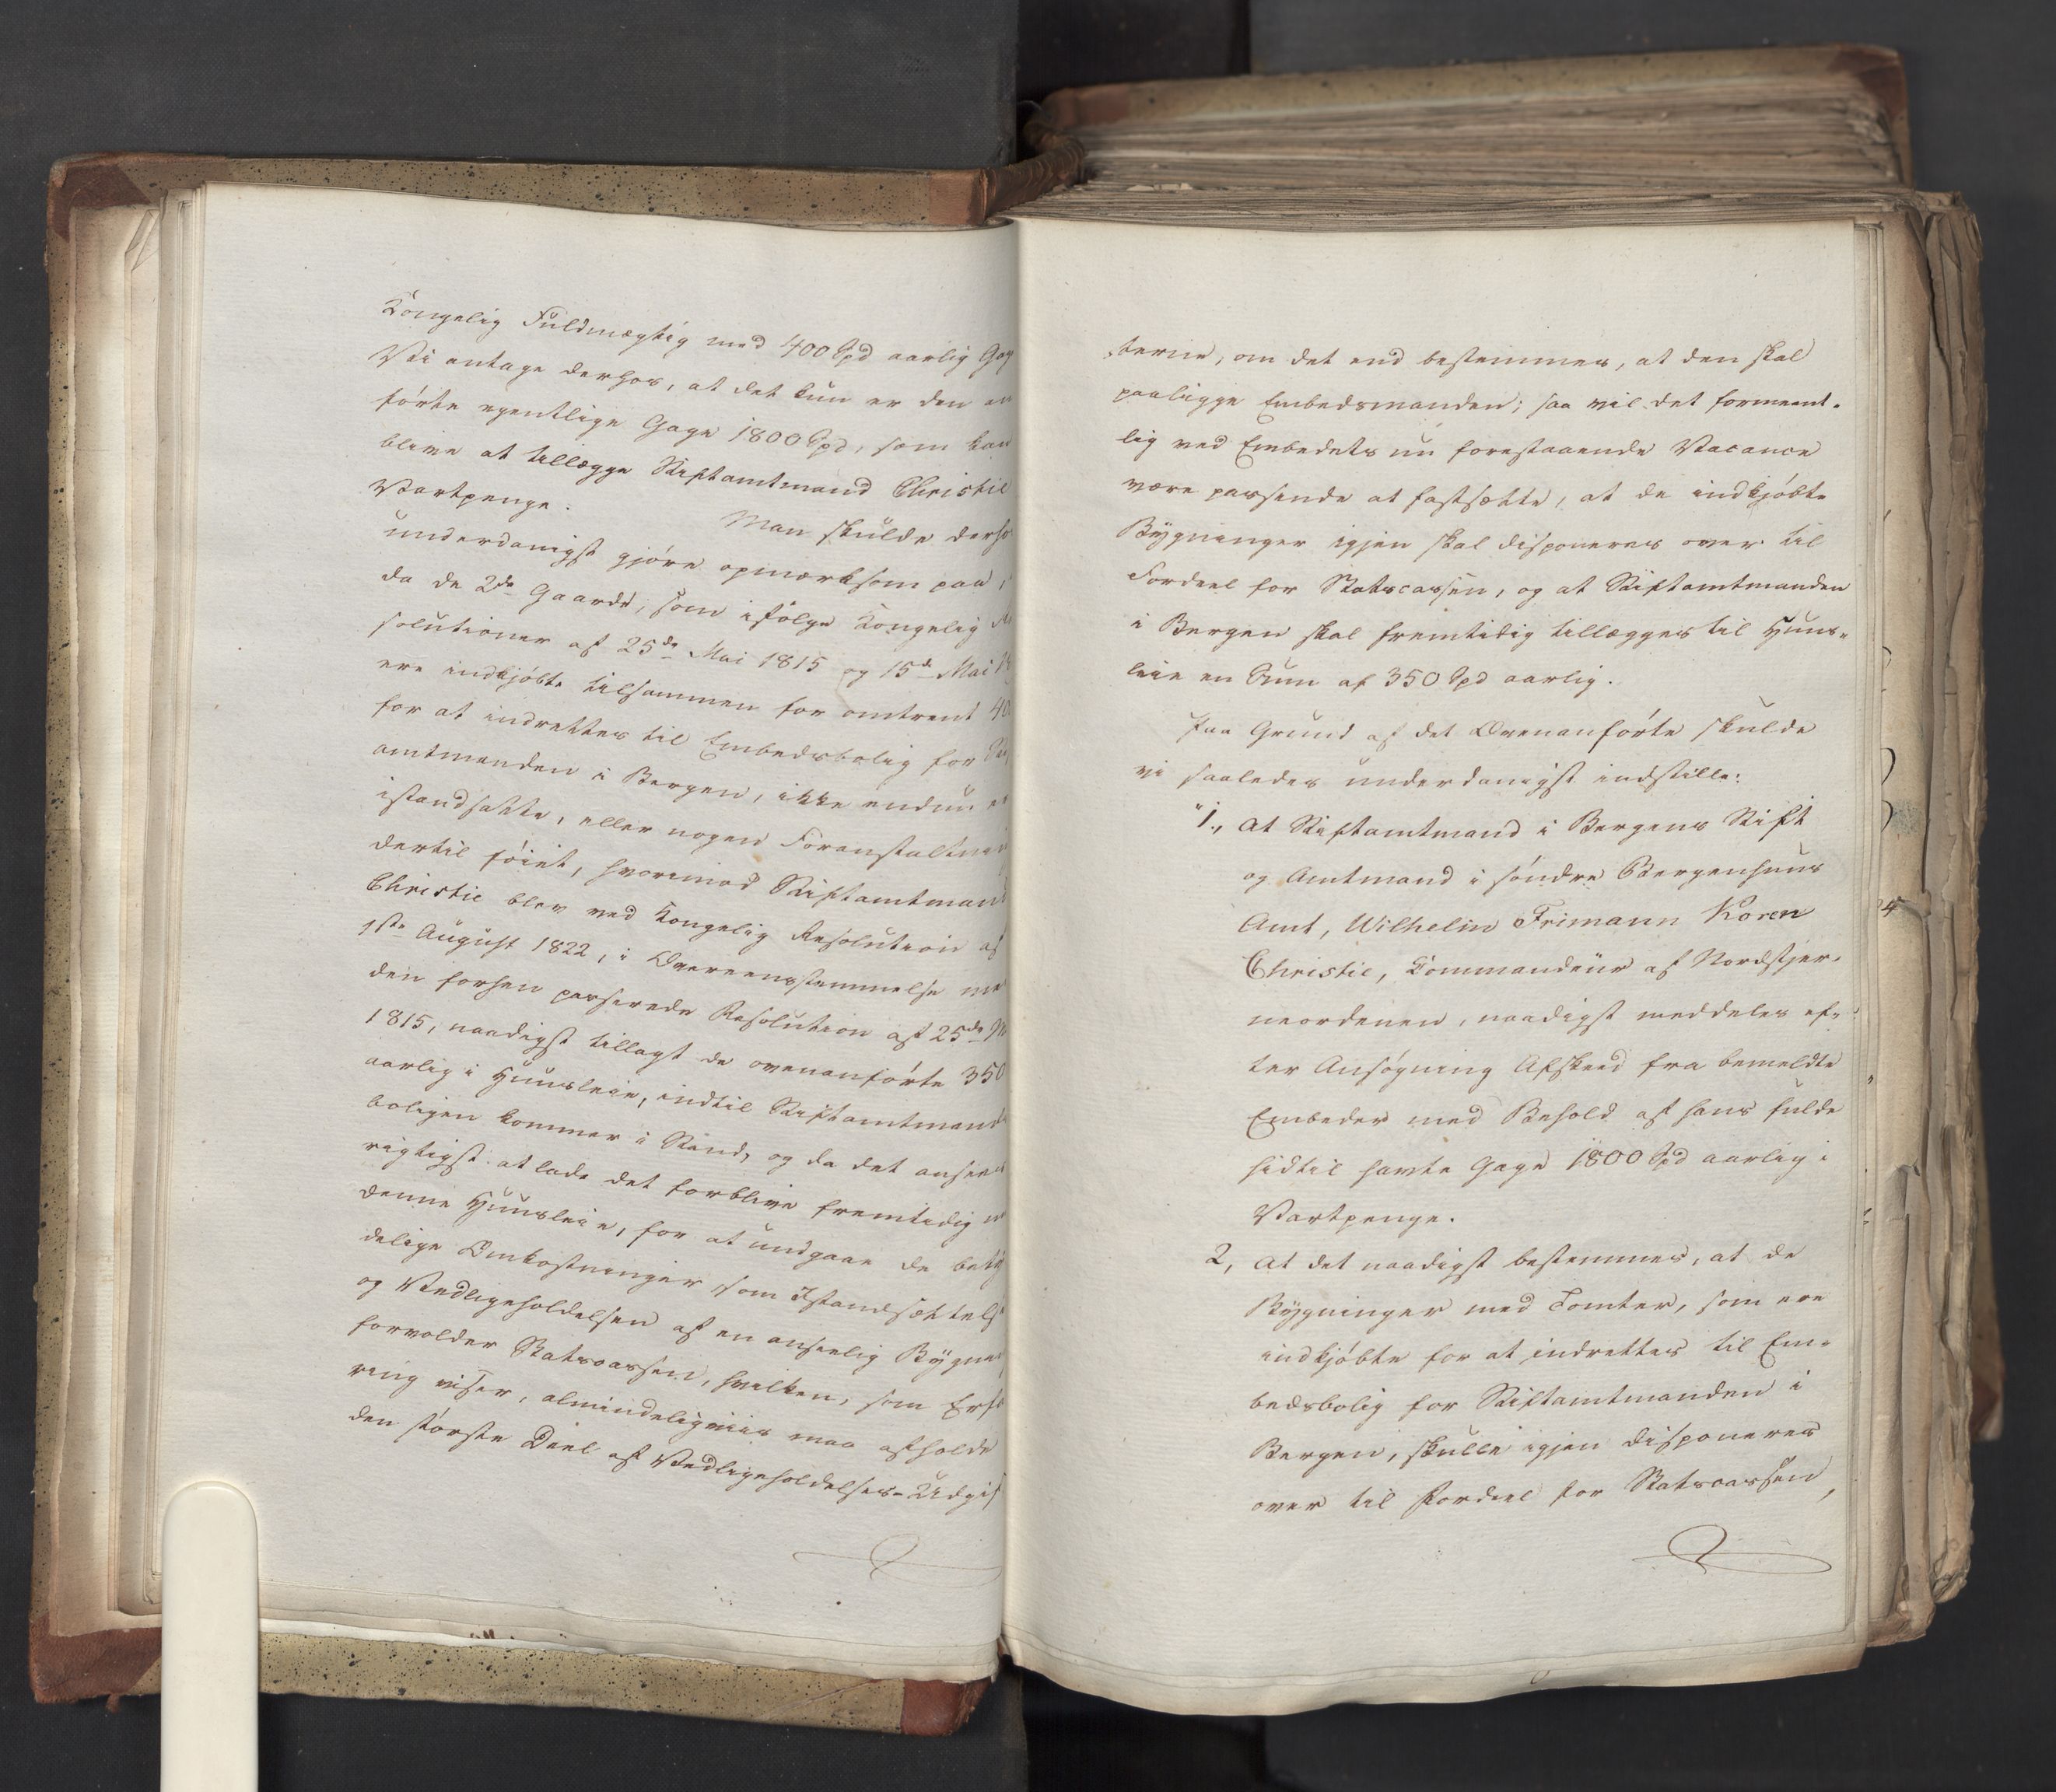 Kongelig Fuldmægtig med 400 Spd aarlig Gag
Vi antage derhos, at det kun er den an
førte egentlige Gage 1800 Spd, som kan
blive at tillægge Stiftamtmand Christie
Vartpenge.
Man skulde derho
underdanigst gjøre opmærksom paa,
da de 2de Gaarde, som ifølge Kongelig
solutioner af 25de Mai 1815 og 15de Mai
ere indkjøbte tilsammen for omtrent 40
for at indrettes til Embedsbolig for
amtmanden i Bergen, ikke endnu er
istandsatte, eller nogen Foranstaltni
dertil føiet, hvorimod Stiftamtmand
Christie blev ved Kongelig Resolution af
1ste August 1822, i Overeensstemmelse me
den forhen passerede Resolution af 25de M
1815, naadigst tillagt de ovenanførte 350
aarlig i Huusleie, indtil Stiftamtmands
boligen kommer i Stand, og da det ansees
rigtigst at lade det forblive fremtidig
denne Huusleie, for at undgaae de bety
delige Omkostninger som Istandsættels
og Vedligeholdelsen af en anseelig Bygni
forvolder Statscassen, hvilken, som Erfa
ring viser, almindeligviis maa afholde
den største Deel af Vedligeholdelses-Udgif
terne, om det end bestemmes, at den skal
paaligge Embedsmanden; saa vil det formeent-
lig ved Embedets nu forestaaende Vacance
være passende at fastsætte, at de indkjøbte
Bygninger igjen skal disponeres over til
Fordeel for Statscassen, og at Stiftamtmanden
i Bergen skal fremtidig tillægges til Huus-
leie en Sum af 350 Spd aarlig.
Paa Grund af det Ovenanførte skulde
vi saaledes underdanigst indstille:
"1., At Stiftamtmand i Bergens Stift
og Amtmand i søndre Bergenhuus
Amt, Wilhelm Frimann Koren
Christie, Kommandeur af Nordstjer-
neordenen, naadigst meddeles ef-
ter Ansøgning Afskeed fra bemeldte
Embeder med Behold af hans fulde
hidtil havte Gage 1800 Spd aarlig i
Vartpenge.
2, At det naadigst bestemmes, at de
Bygninger med Tomter, som ere
indkjøbte for at indrettes til Em-
bedsbolig for Stiftamtmanden i
Bergen, skulle igjen disponeres
over til Fordeel for Statscassen,